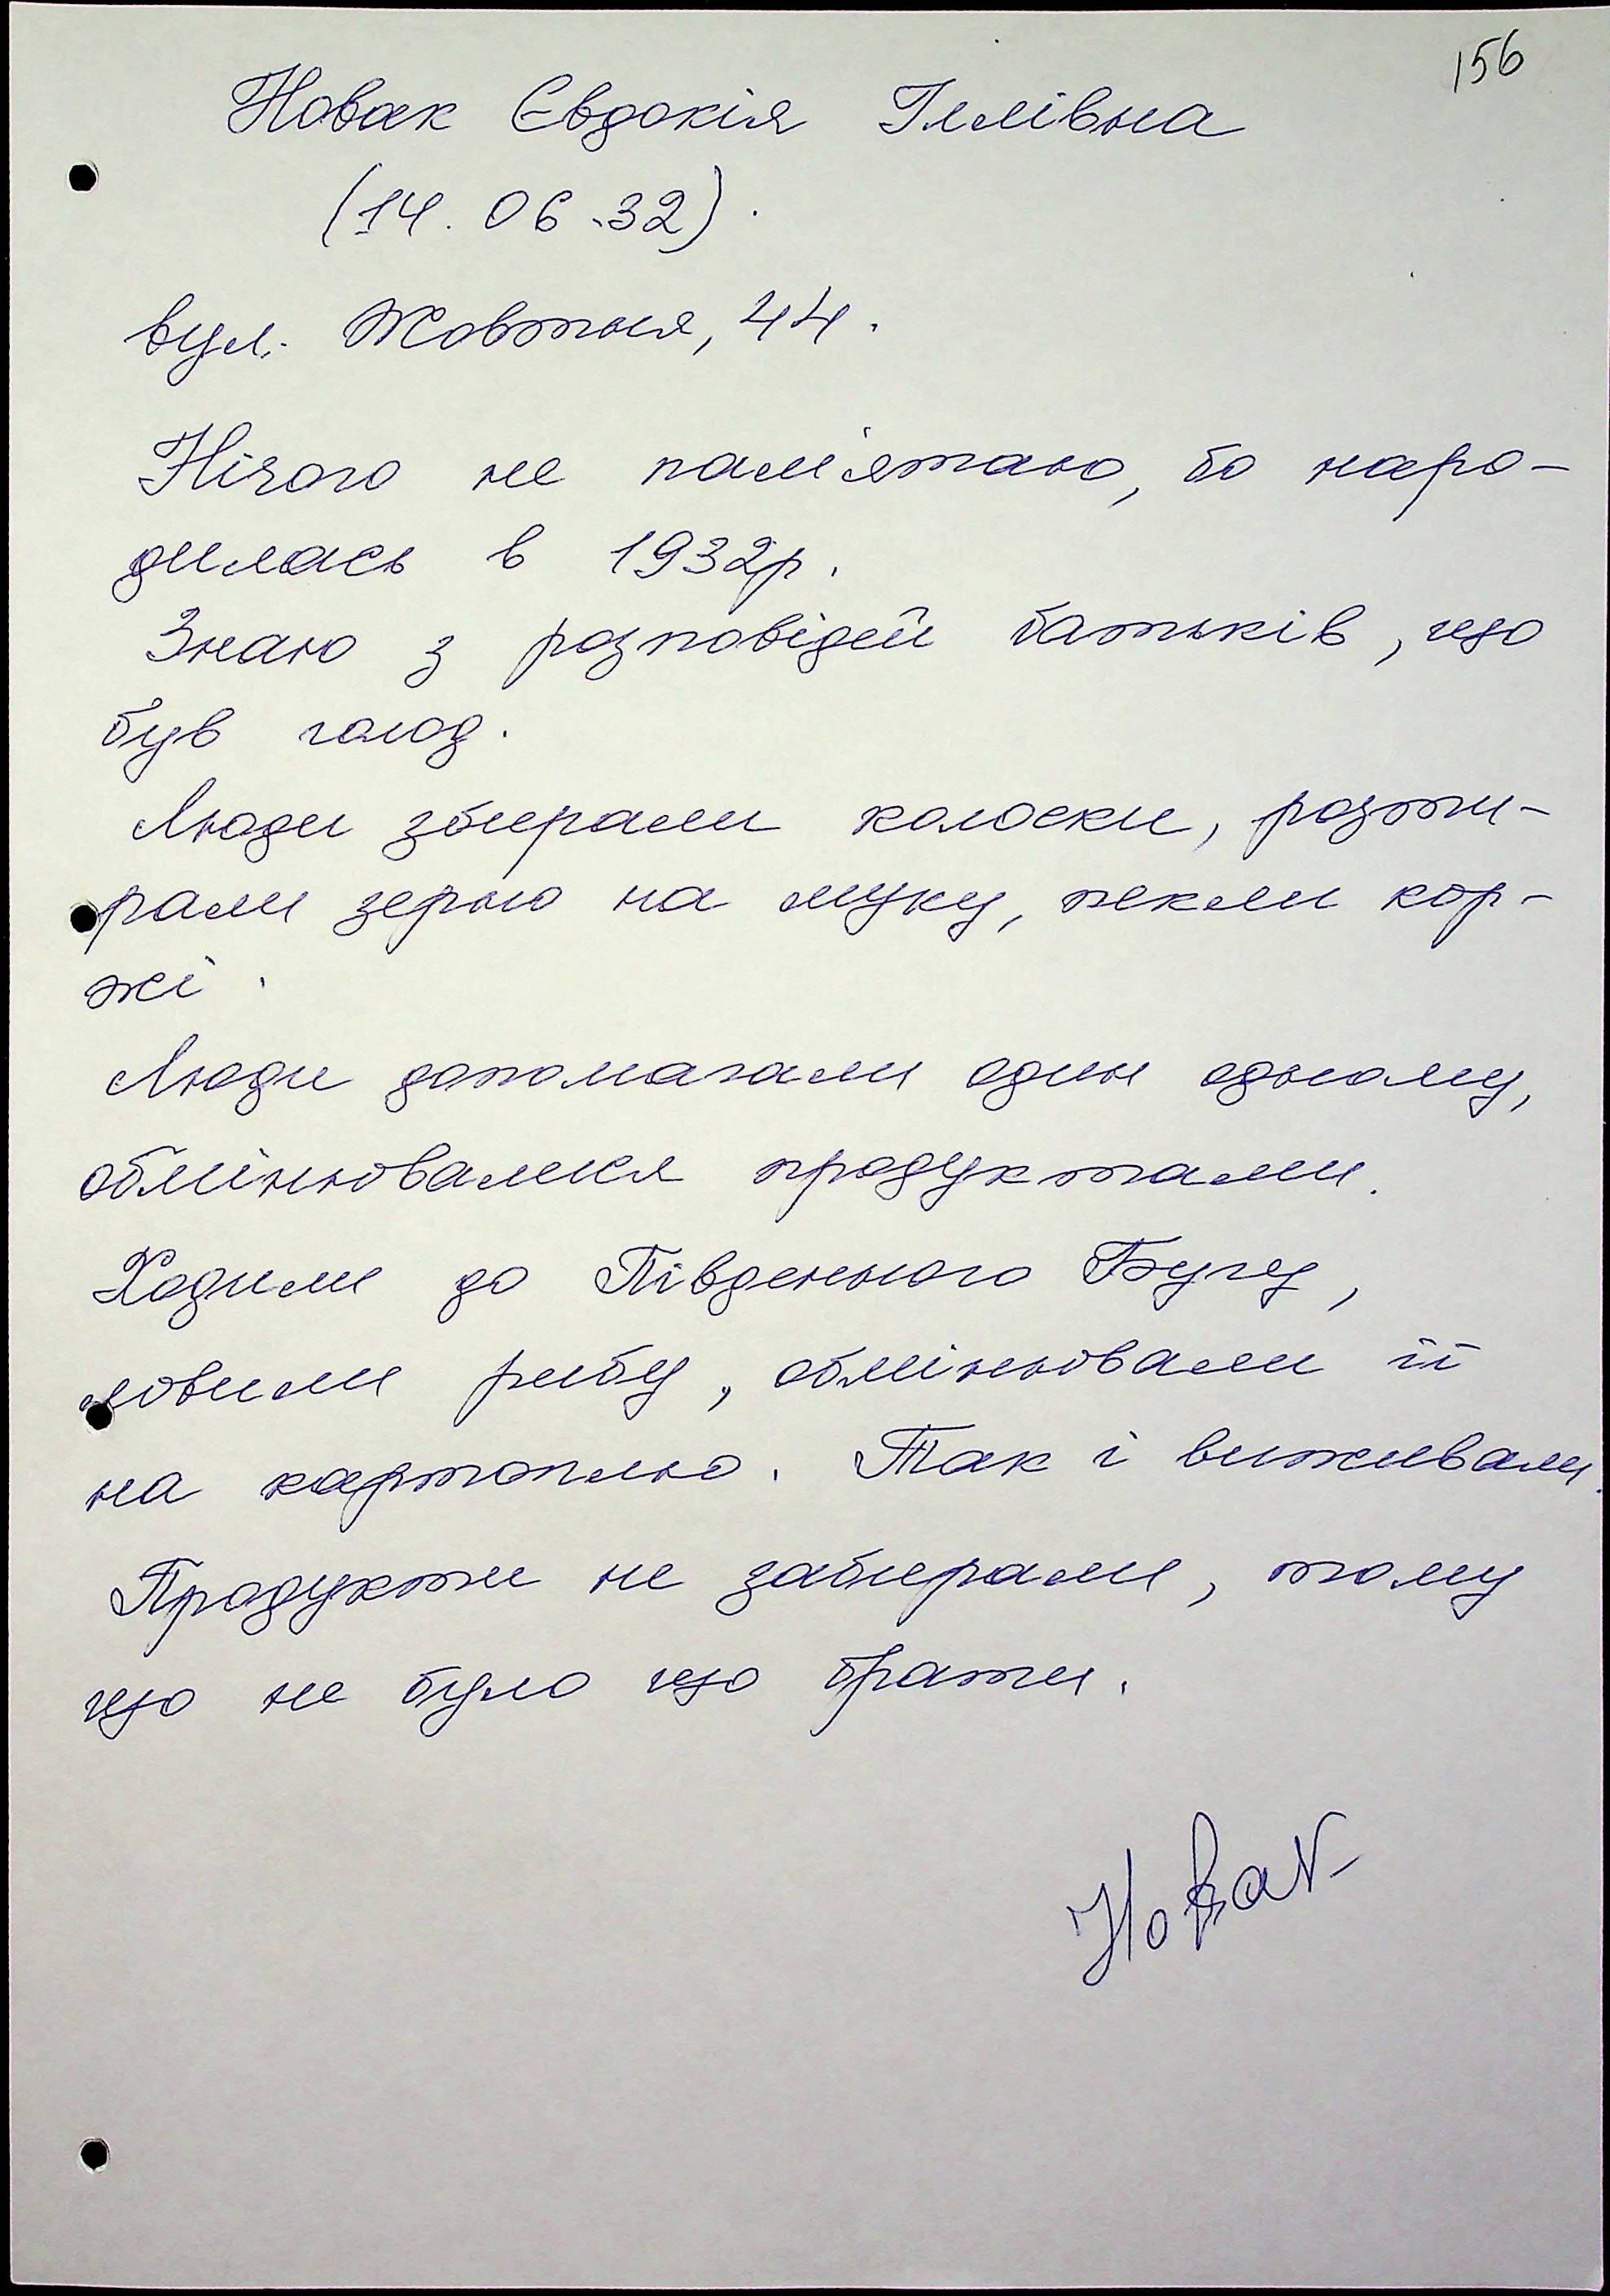 156
Новак Євдокія Іллівна
(14.06.32).
вул. Жовтня, 44.
Нічого не пам'ятаю, бо наро-
дилась в 1932р.
Знаю з розповідей батьків, що
був голод.
Люди збирали колоски, розти-
рали зерно на муку, пекли кор-
жі.
Люди допомагали один одному,
обмінювалися продуктами.
Ходили до Південного Бугу,
ловили рибу, обмінювали її
на картоплю. Так і виживали.
Продукти не забирали, тому
що не було що брати.
Новак